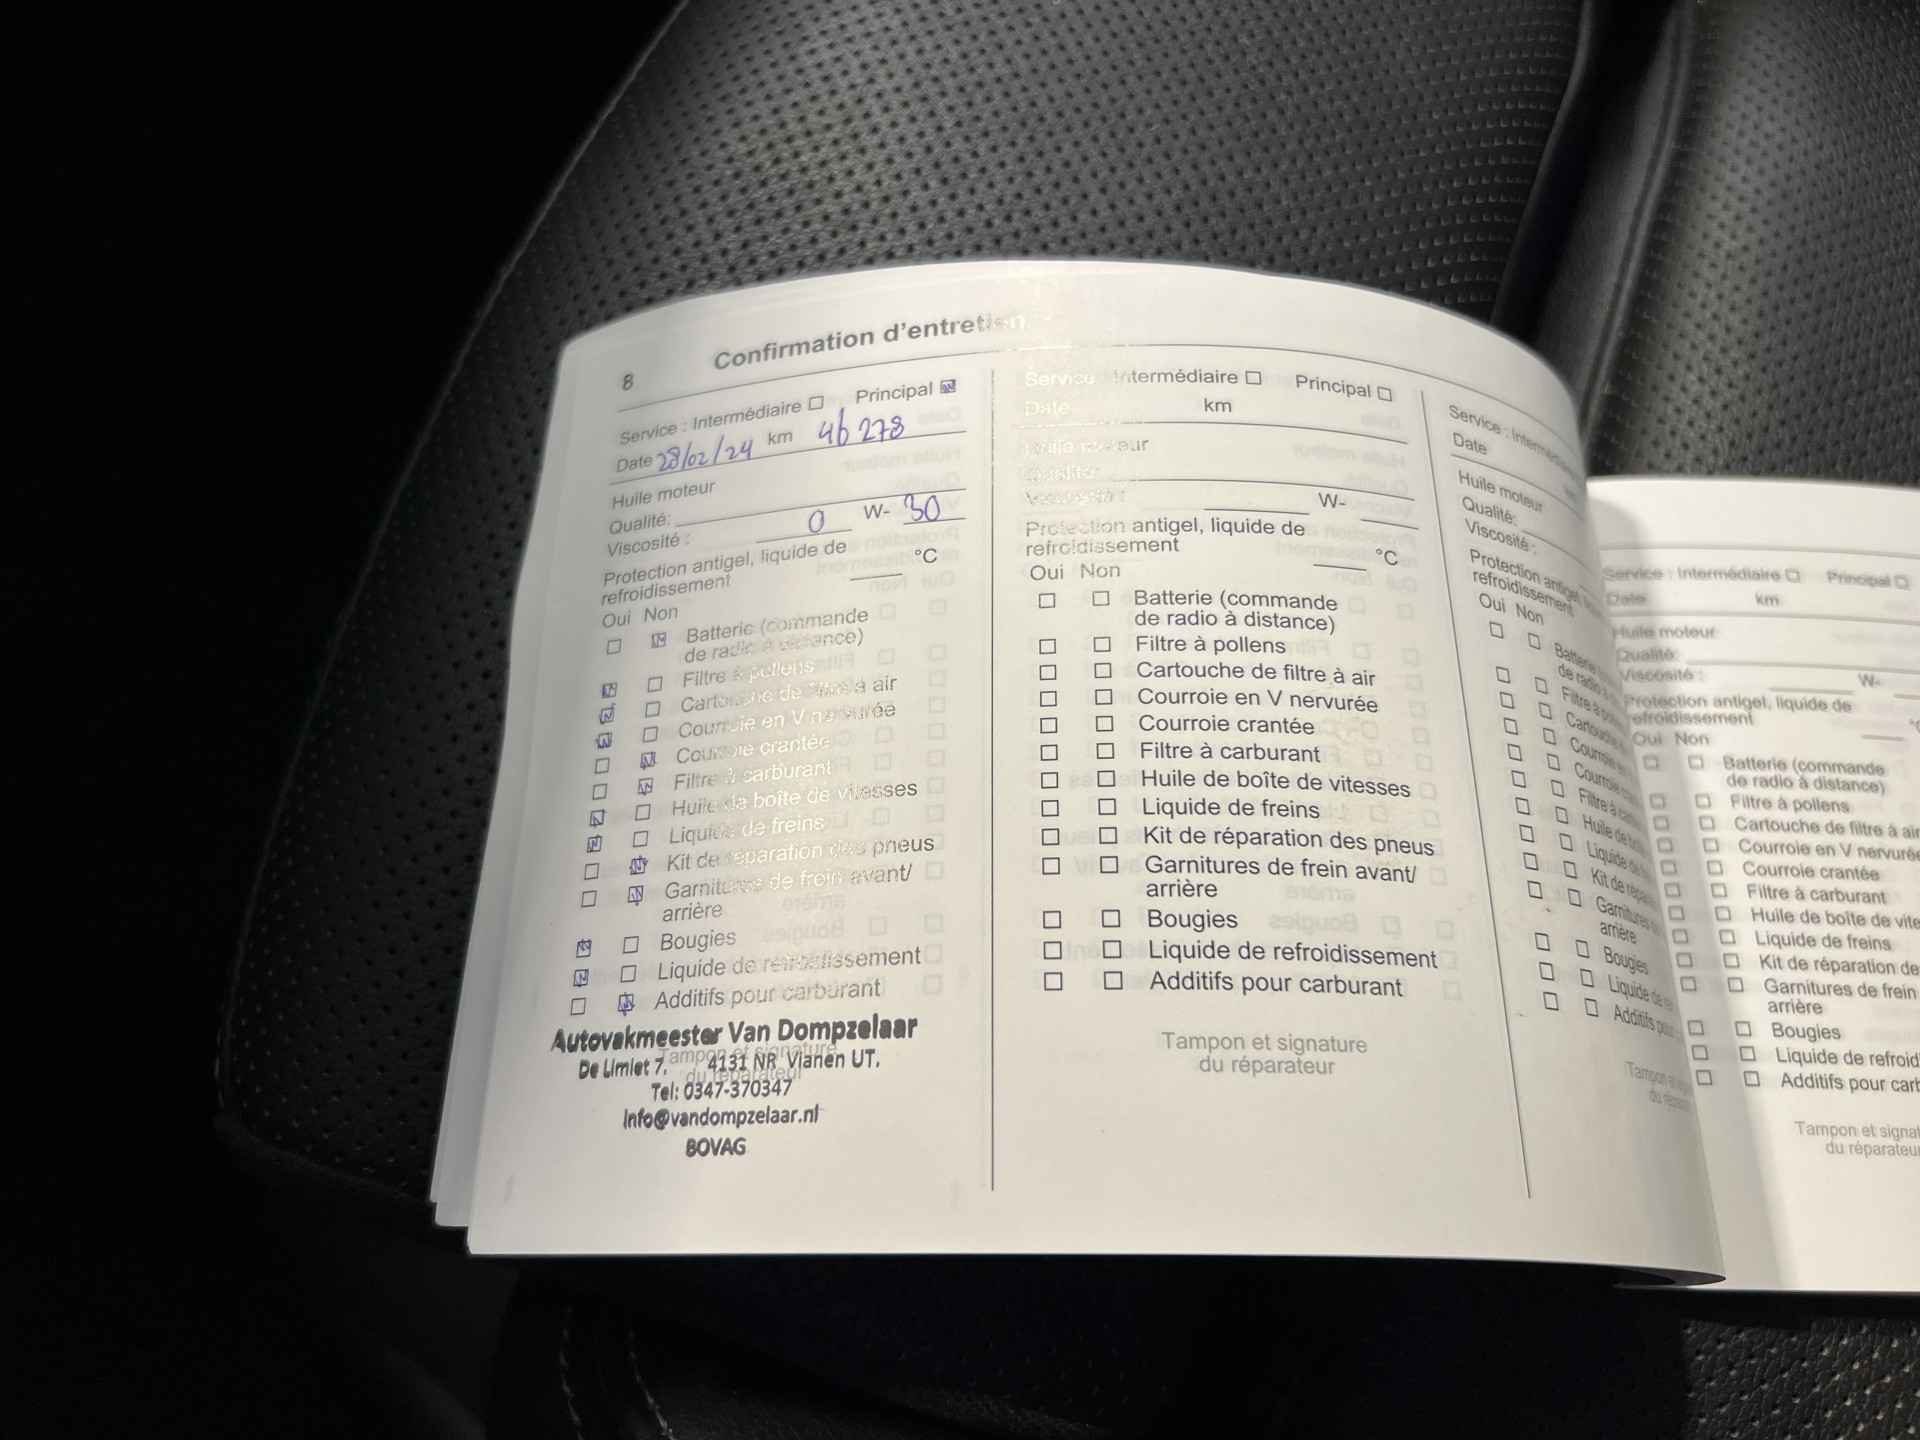 8 Confirmation d'entretien
Service : Intermédiaire ☐ Principal ☒
Date 28/02/24 km 46 278
Huile moteur
Qualité:
Viscosité : 0 W- 30
Protection antigel, liquide de
refroidissement °C
Oui Non
☐ ☒ Batterie (commande
de radio à distance)
☒ ☐ Filtre à pollens
☒ ☐ Cartouche de filtre à air
☒ ☐ Courroie en V nervurée
☐ ☒ Courroie crantée
☐ ☒ Filtre à carburant
☒ ☐ Huile de boîte de vitesses
☒ ☐ Liquide de freins
☐ ☒ Kit de réparation des pneus
☐ ☒ Garnitures de frein avant/
arrière
☒ ☐ Bougies
☒ ☐ Liquide de refroidissement
☐ ☒ Additifs pour carburant
Tampon et signature
du réparateur
Autovakmeester Van Dompzelaar
De Limiet 7, 4131 NR Vianen UT.
Tel: 0347-370347
Info@vandompzelaar.nl
BOVAG
Service : Intermédiaire ☐ Principal ☐
Date km
Huile moteur
Qualité:
Viscosité : W-
Protection antigel, liquide de
refroidissement °C
Oui Non
☐ ☐ Batterie (commande
de radio à distance)
☐ ☐ Filtre à pollens
☐ ☐ Cartouche de filtre à air
☐ ☐ Courroie en V nervurée
☐ ☐ Courroie crantée
☐ ☐ Filtre à carburant
☐ ☐ Huile de boîte de vitesses
☐ ☐ Liquide de freins
☐ ☐ Kit de réparation des pneus
☐ ☐ Garnitures de frein avant/
arrière
☐ ☐ Bougies
☐ ☐ Liquide de refroidissement
☐ ☐ Additifs pour carburant
Tampon et signature
du réparateur
Service :
Date
Huile moteur
Qualité:
Viscosité :
Protection antigel,
refroidissement
Oui Non
☐ ☐ Batterie
de radio
☐ ☐ Filtre à
☐ ☐
☐ ☐
☐ ☐
☐ ☐ Filtre à
☐ ☐ Huile de
☐ ☐ Liquide
☐ ☐ Kit de
☐ ☐ Garnitures
arrière
☐ ☐ Bougies
☐ ☐ Liquide de
☐ ☐ Additifs
Tampon et
du
Service : Intermédiaire ☐ Principal ☐
Date km
Huile moteur
Qualité:
Viscosité : W-
Protection antigel, liquide de
refroidissement
Oui Non
☐ ☐ Batterie (commande
de radio à distance)
☐ ☐ Filtre à pollens
☐ ☐ Cartouche de filtre à air
☐ ☐ Courroie en V nervurée
☐ ☐ Courroie crantée
☐ ☐ Filtre à carburant
☐ ☐ Huile de boîte de
☐ ☐ Liquide de freins
☐ ☐ Kit de réparation
☐ ☐ Garnitures de frein
arrière
☐ ☐ Bougies
☐ ☐ Liquide de
☐ ☐ Additifs pour
Tampon et
du réparateur